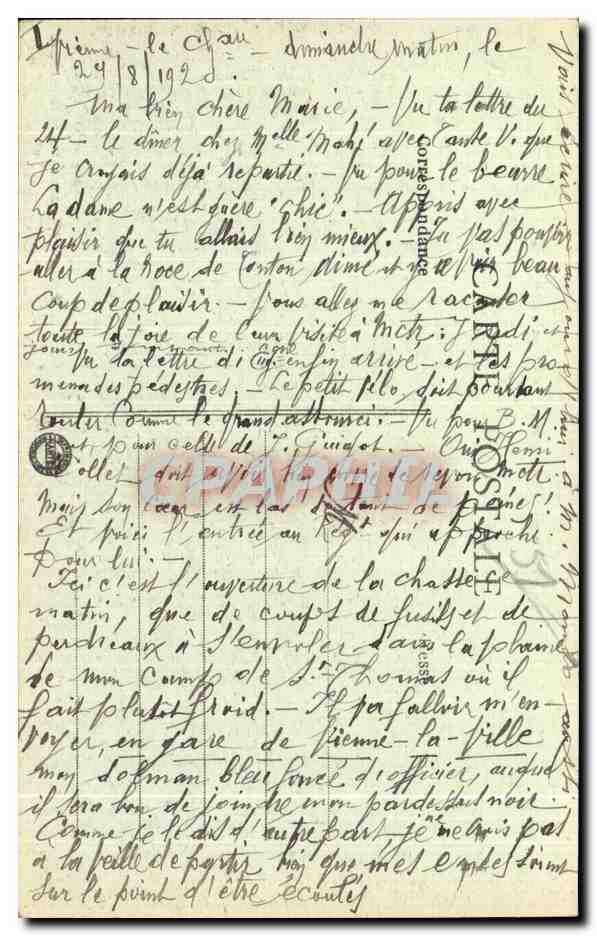 Vienne-le-Chau - dimanche matin, le
29/8/1920.
Ma bien chère Marie, - Vu ta lettre du
24 - le dîner chez Melle Mahé avec tante V. que
je croyais déjà repartie. - Vu pour le beurre
La dame n'est guère "chic". - Appris avec
plaisir que tu allais bien mieux. - Tu vas pouvoir
aller à la noce de Tonton Aimé et beau
coup de plaisir. - Vous allez me raconter
toute la joie de leur visite à Metz. Jeudi et
Vu la lettre d'Eug. enfin arrivé - et ses pro
menades pédestres - Le petit vélo doit pourtant
rouler comme le grand - Vu pour B. M.
et pour celle de J. Guigot. - Oui Henri
ollet doit avoir de revoir Metz.
Mais son cœur est las de tant de peines!
Et voici l'entrée au Regt qui approche
pour lui. -
Ici c'est l'ouverture de la chasse ce
matin, que de coups de fusils et de
perdreaux à s'envoler dans la plaine
de mon camp de St Thomas où il
fait plutôt froid. - Il va falloir m'en-
voyer, en gare de Vienne-la-Ville
mon dolman bleu foncé d'officier, auquel
il sera bon de joindre mon pardessus noir.
Comme je le dis d'autre part - je ne suis pas
à la veille de partir bien que mes soient
sur le point d'être écoutés
Vais écrire aujourd'hui à M.
Correspondance
CARTE POSTALE
Adresse
57
CPAPHIL